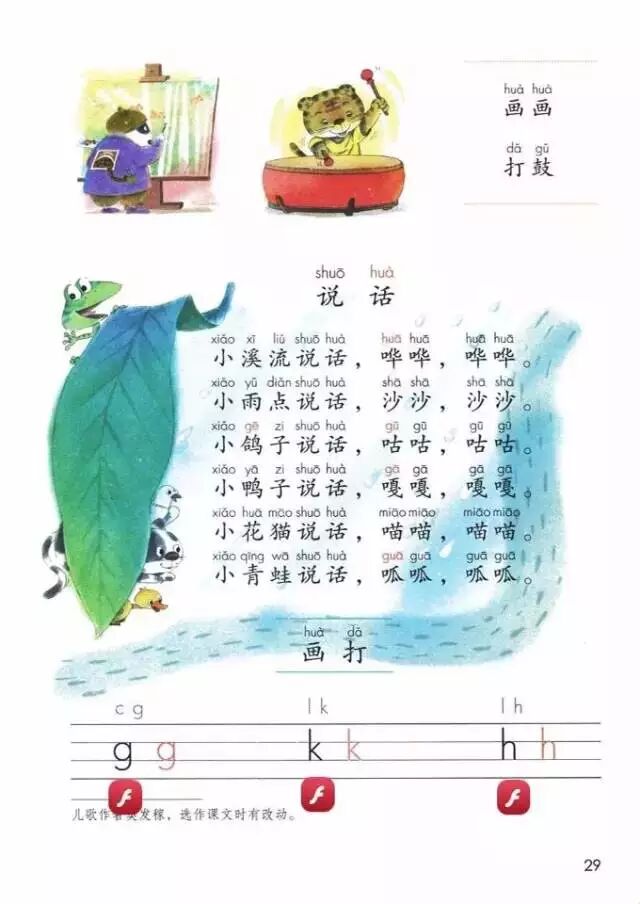 huà huà
画画
dǎ gǔ
打鼓
shuō huà
说话
xiǎo xī liú shuō huà huā huā huā huā
小溪流说话，哗哗，哗哗。
xiǎo yǔ diǎn shuō huà shā shā shā shā
小雨点说话，沙沙，沙沙。
xiǎo gē zi shuō huà gū gū gū gū
小鸽子说话，咕咕，咕咕。
xiǎo yā zi shuō huà gā gā gā gā
小鸭子说话，嘎嘎，嘎嘎。
xiǎo huā māo shuō huà miāo miāo miāo miāo
小花猫说话，喵喵，喵喵。
xiǎo qīng wā shuō huà guā guā guā guā
小青蛙说话，呱呱，呱呱。
huà dǎ
画打
c g l k l h
g g k k h h
儿歌作者发稼，选作课文时有改动。
29